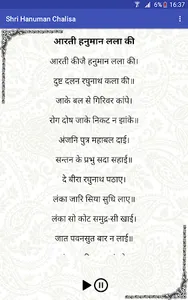 16:37
Shri Hanuman Chalisa
आरती हनुमान लला की
आरती कीजै हनुमान लला की।
दुष्ट दलन रघुनाथ कला की॥
जाके बल से गिरिवर कांपे।
रोग दोष जाके निकट न झांके॥
अंजनि पुत्र महाबल दाई।
सन्तन के प्रभु सदा सहाई॥
दे बीरा रघुनाथ पठाए।
लंका जारि सिया सुधि लाए॥
लंका सो कोट समुद्र-सी खाई।
जात पवनसुत बार न लाई॥